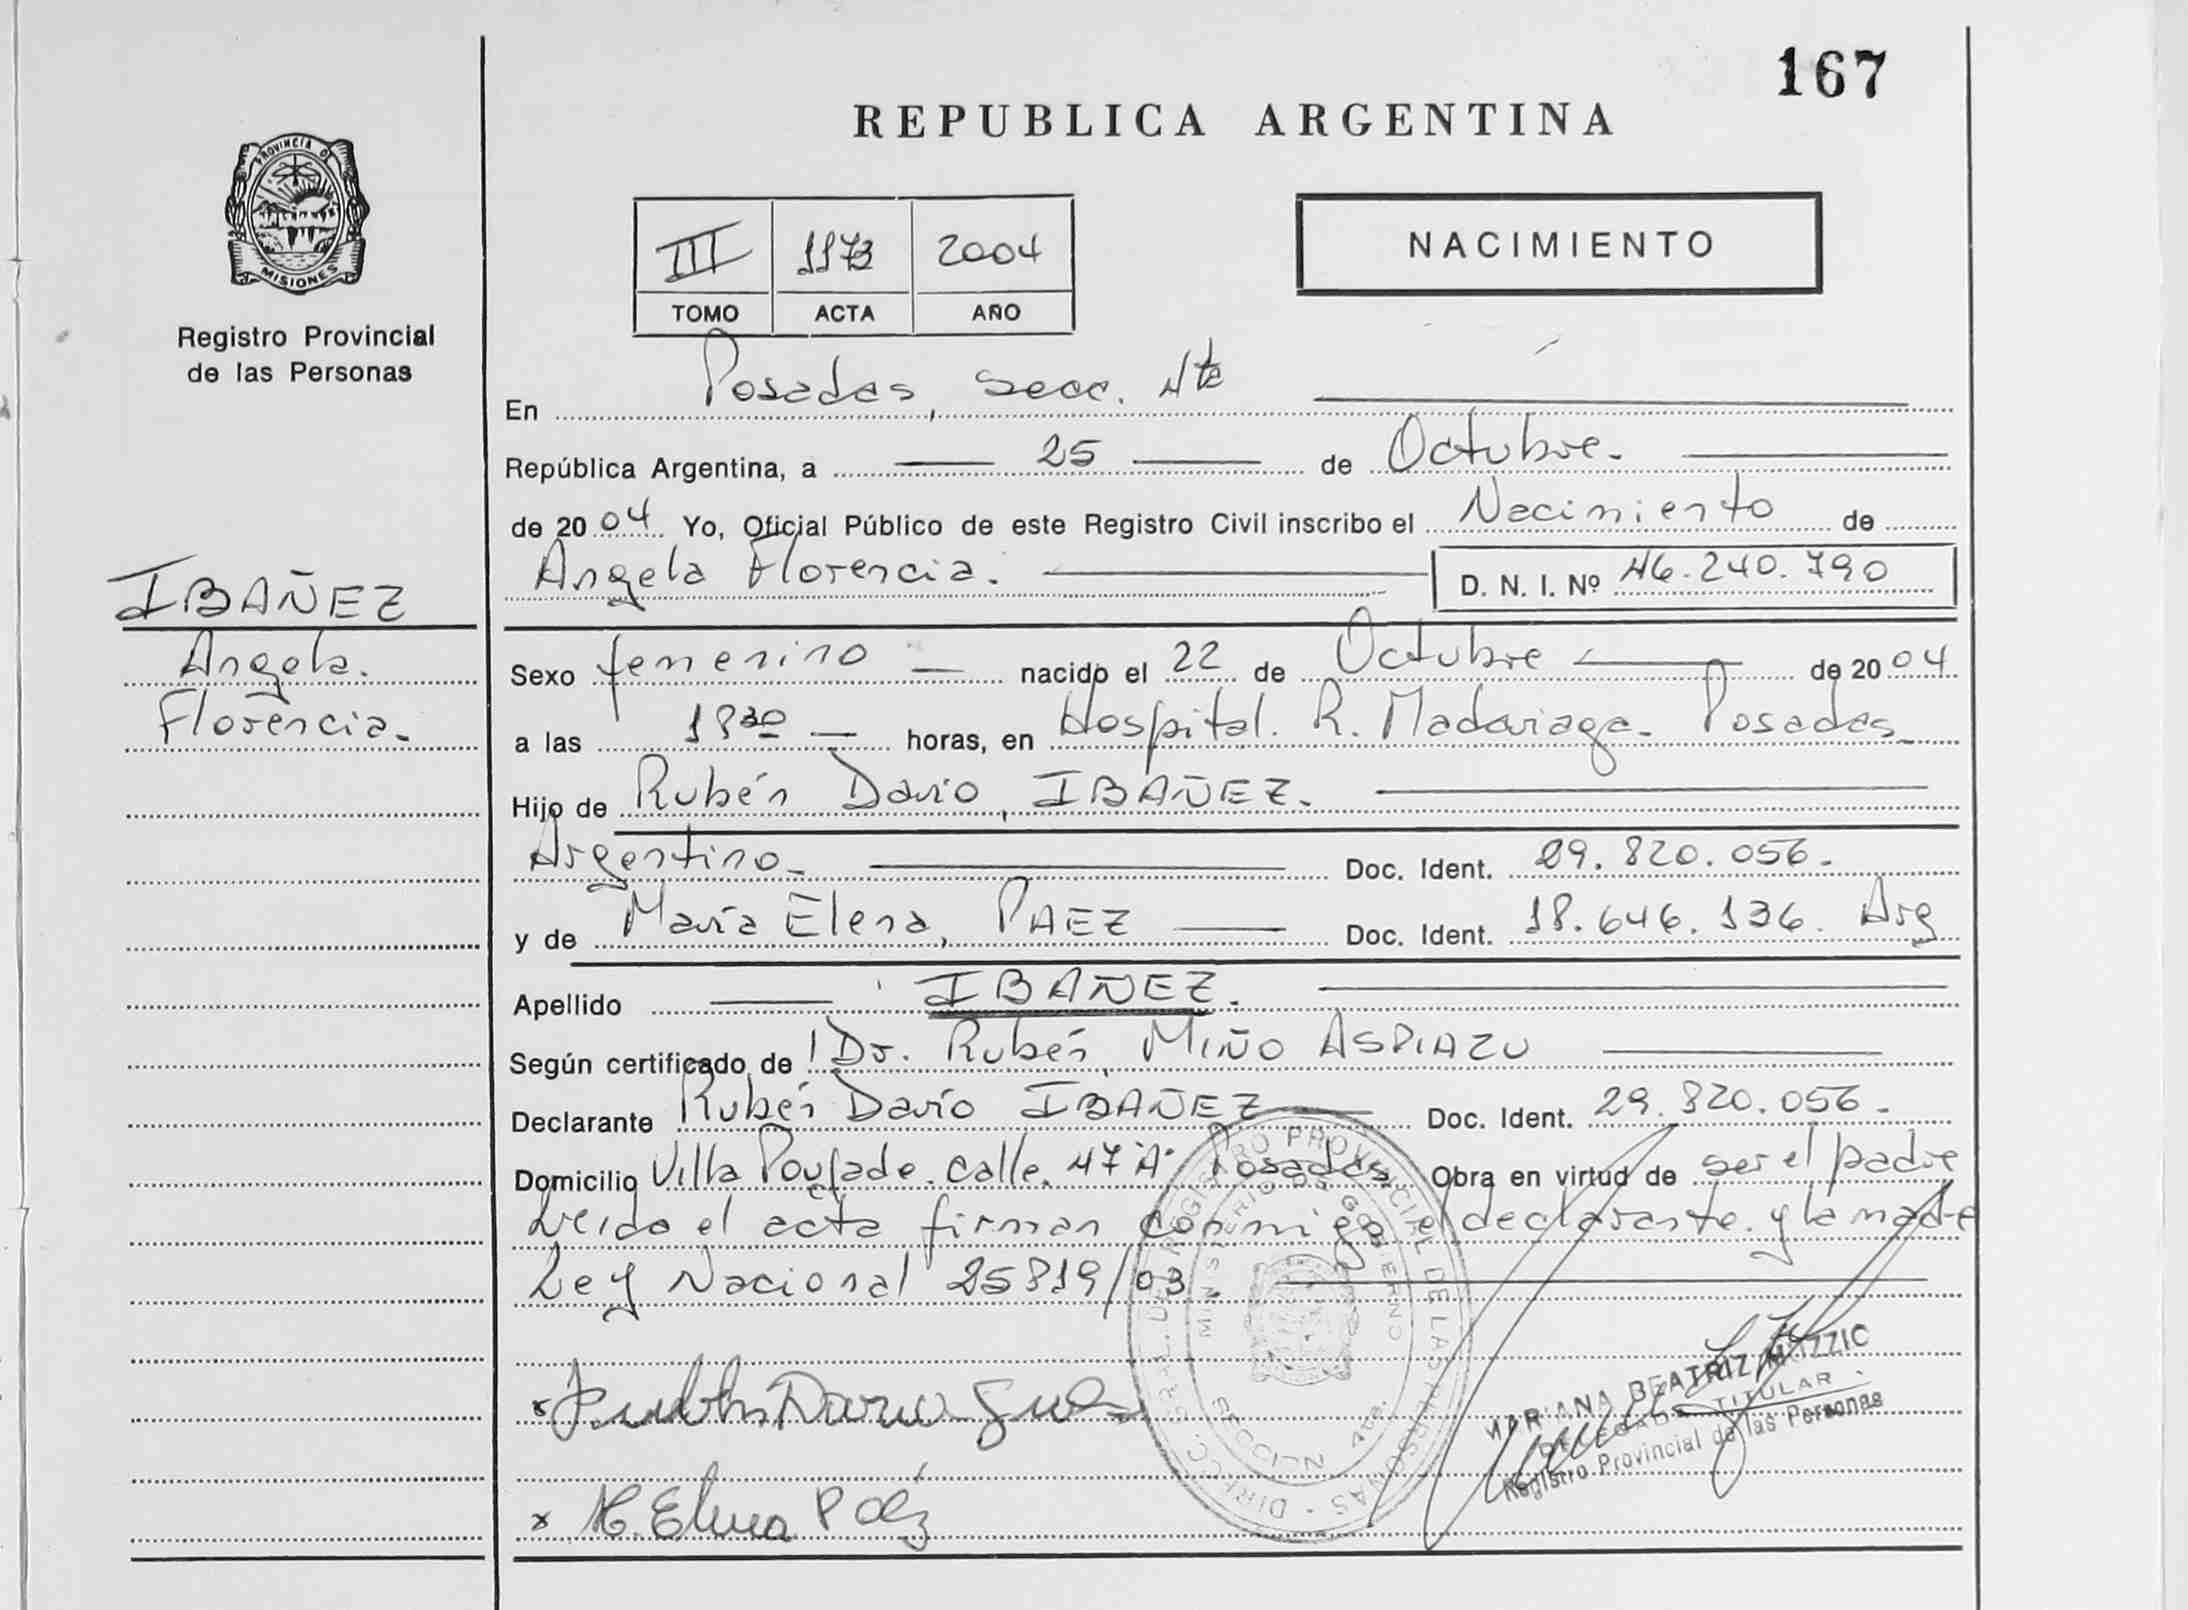 167
REPUBLICA ARGENTINA
PROVINCIA DE
MISIONES
Registro Provincial
de las Personas
III 1173 2004
TOMO ACTA AÑO
NACIMIENTO
En Posadas, Secc. 4ta
República Argentina, a 25 de Octubre.
de 2004 Yo, Oficial Público de este Registro Civil inscribo el Nacimiento de
Angela Florencia. D. N. I. Nº 46.240.790
IBAÑEZ
Angela.
Florencia.
Sexo femenino nacido el 22 de Octubre de 2004
a las 1830 horas, en Hospital. R. Madariaga. Posadas
Hijo de Rubén Dario, IBAÑEZ.
Argentino Doc. Ident. 29.820.056.
y de María Elena, PAEZ Doc. Ident. 18.646.136. Arg
Apellido IBAÑEZ.
Según certificado de Dr. Rubén, MIÑO ASPIAZU
Declarante Rubén Darío IBAÑEZ Doc. Ident. 29.820.056.
Domicilio Villa Poujade. calle. 47 "A" Posadas. Obra en virtud de ser el padre
Leido el acta firman conmigo el declarante. y la madre
Ley Nacional 25819/03.
DIRECC. GRAL. DEL REGISTRO PROVINCIAL DE LAS PERSONAS
MINISTERIO DE GOBIERNO
SECCION 4ta.
x Rubén Dario
x M. Elena Paéz
MARIANA BEATRIZ
DELEGADA TITULAR
Registro Provincial de las Personas